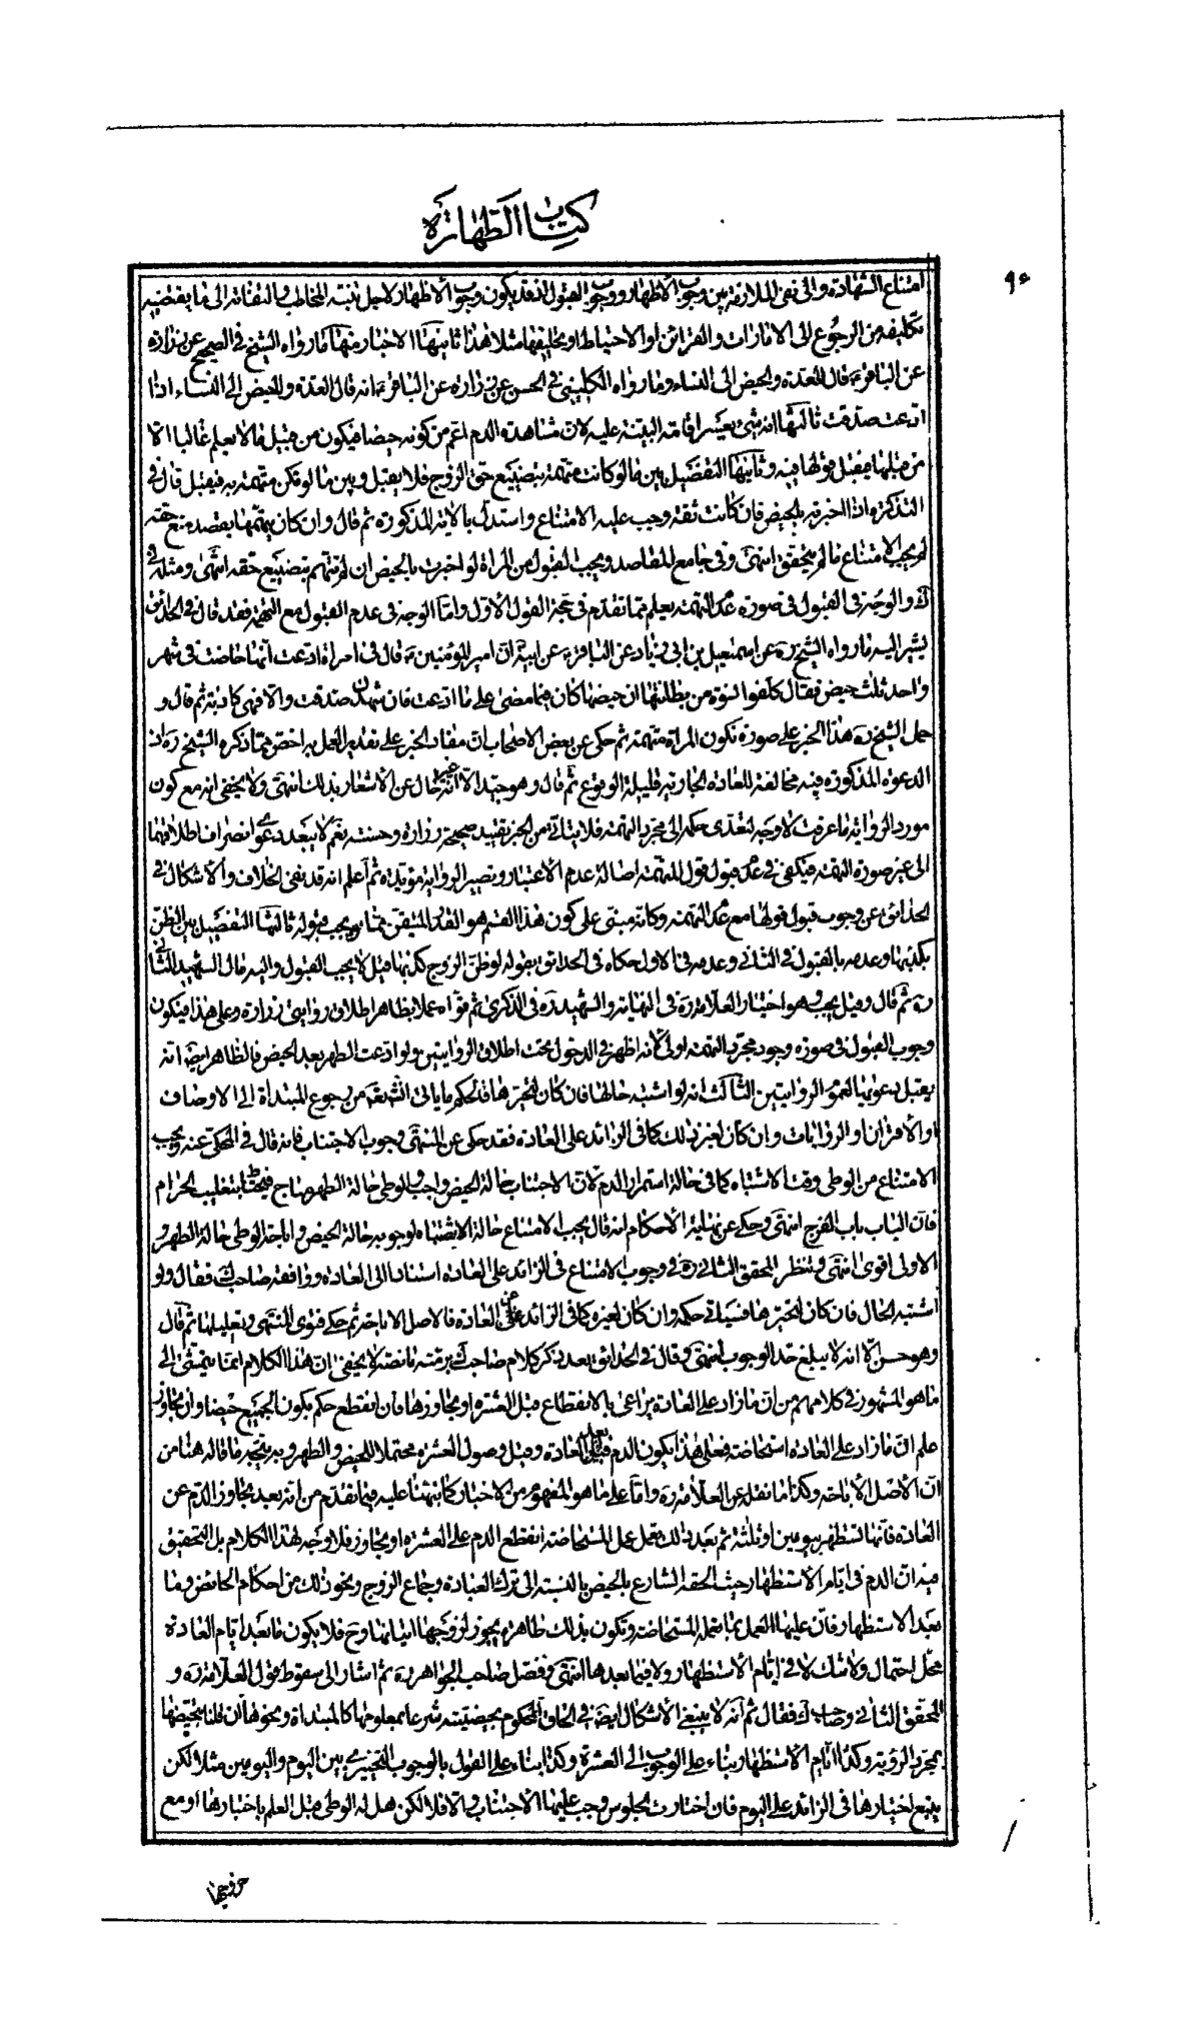 كتاب الطهارة
٩٤
امتناع الشهادة والى نفى الملازمة بين وجوب الأظهار ووجوب القبول اذ قد يكون وجوب الأظهار لاجل تنبه المخاطب والتفاته الى ما يقتضيه
تكليفه من الرجوع الى الامارات والقرائن او الاحتياط او تحليفها مثلا هذا ثانيها الاخبار منها ما رواه الشيخ فى الصحيح عن زرارة
عن الباقر ع قال العدة والحيض الى النساء وما رواه الكلينى فى الحسن عن زرارة عن الباقر ع انه قال العدة والحيض الى النساء اذا
ادعت صدقت ثالثها انه شىء يعسر اقامة البينة عليه لان مشاهدة الدم اعم من كونه حيضا فيكون من قبيل ما لا يعلم غالبا الا
من قبلها فيقبل قولها فيه وثانيها التفصيل بين ما لو كانت متهمة بتضييع حق الزوج فلا يقبل وبين ما لو لم تكن متهمة به فيقبل قال فى
التذكرة اذا اخبرته بالحيض فان كانت ثقة وجب عليه الامتناع واستدل بالاية المذكورة ثم قال وان كان يتهمها بقصد منع حقه
لم يجب الامتناع ما لم يتحقق انتهى وفى جامع المقاصد ويجب القبول من المراة لو اخبرت بالحيض ان لم تتهم بتضييع حقه انتهى ومثله فى
لك والوجه فى القبول فى صورة عدم التهمة يعلم مما تقدم فى حجة القول الأول واما الوجه فى عدم القبول مع التهمة فقد قال فى الحدائق
يشير اليه ما رواه الشيخ ره عن اسمعيل بن ابى زياد عن الباقر ع عن ابيه ان امير المؤمنين ع قال فى امراة ادعت انها حاضت فى شهر
واحد ثلث حيض فقال كلفوا نسوة من بطانتها ان حيضها كان فيما مضى على ما ادعت فان شهدن صدقت والا فهى كاذبة ثم قال و
حمل الشيخ ره هذا الخبر على صورة تكون المراة متهمة ثم حكى عن بعض الاصحاب ان مفاد الخبر على تقدير العمل به اخص مما ذكره الشيخ ره اذ
الدعوة المذكورة فيه مخالفة للعادة الجارية قليلة الوقوع ثم قال وهو جيد الا انه غير خال عن الأشعار بذلك انتهى ولا يخفى انه مع كون
مورد الرواية ما عرفت لا وجه لتعدى حكمه الى مجرد التهمة فلا يتاتى من الخبر تقييد صحيحة زرارة وحسنته نعم لا يبعد دعوى انصراف اطلاقهما
الى غير صورة التهمة فيكفى فى عدم قبول قول المتهمة اصالة عدم الاعتبار وتصير الرواية مؤيدة ثم اعلم انه قد نفى الخلاف والأشكال فى
الحدائق عن وجوب قبول قولها مع عدم التهمة وكانه مبنى على كون هذا القسم هو القدر المتيقن مما يجب قبوله ثالثها التفصيل بين الظن
بكذبها وعدمه بالقبول فى الثانى وعدمه فى الاول حكاه فى الحدائق بقوله لو ظن الزوج كذبها قيل لا يجب القبول واليه قال الشهيد الثانى
ره ثم قال وقيل يجب وهو اختيار العلامة ره فى النهاية والشهيد ره فى الذكرى ثم قواه عملا بظاهر اطلاق روايتى زرارة وعلى هذا فيكون
وجوب القبول فى صورة وجود مجرد التهمة اولى لانه اظهر فى الدخول تحت اطلاق الروايتين ولو ادعت الطهر بعد الحيض فالظاهر ايضا انه
يقبل دعويها لعموم الروايتين الثالث انه لو اشتبه حالها فان كان لتحيرها فالحكم ما ياتى انشاء الله من رجوع المبتداة الى الاوصاف
او الأقران او الروايات وان كان لغير ذلك كما فى الزائد على العادة فقد حكى عن المنتهى وجوب الاجتناب فانه قال فى المحكى عنه ويجب
الامتناع من الوطى وقت الاشتباه كما فى حالة استمرار الدم لان الاجتناب حالة الحيض واجب والوطى حالة الطهر مباح فيحتاط بتغليب الحرام
فان الباب باب الفرج انتهى وحكى عن نهاية الأحكام انه قال يجب الامتناع حالة الاشتباه لوجوبه حالة الحيض واباحة الوطى حالة الطهر و
الاولى اقوى انتهى وتنظر المحقق الثانى ره فى وجوب الامتناع فى الزائد على العادة استنادا الى العادة ووافقه صاحب لك فقال ولو
اشتبه الحال فان كان لتحيرها فسياتى حكمه وان كان لغيره كما فى الزائد على العادة فالاصل الاباحة ثم حكى فتوى المنتهى وتعليلها ثم قال
وهو حسن الا انه لا يبلغ حد الوجوب انتهى وقال فى الحدائق بعد ذكر كلام صاحب لك برمته ما نصه لا يخفى ان هذا الكلام انما يتمشى الى
ما هو المشهور فى كلامهم من ان ما زاد على العادة يراعى بالانقطاع قبل العشرة او يجاوزها فان انقطع حكم بكون الجميع حيضا وان تجاوز
علم ان ما زاد على العادة استحاضة فعلى هذا يكون الدم بعد العادة وقبل وصول العشرة محتملا للحيض والطهر وبه يتجه ما قاله هنا من
ان الأصل الأباحة وكذا ما نقله عن العلامة ره واما على ما هو المفهوم من الاخبار كما نبهنا عليه فيما تقدم من انه بعد تجاوز الدم عن
العادة فانها تستظهر بيومين او ثلثة ثم بعد ذلك تعمل عمل المستحاضة انقطع الدم على العشرة او تجاوز فلا وجه لهذا الكلام بل التحقيق
فيه ان الدم فى ايام الاستظهار حيث الحقه الشارع بالحيض بالنسبة الى ترك العبادة وجماع الزوج ونحو ذلك من احكام الحائض وما
بعد الاستظهار فان عليها العمل بما تعمله المستحاضة وتكون بذلك طاهرة يجوز لزوجها اتيانها وح فلا يكون ما بعد ايام العادة
محل احتمال ولا شك لا فى ايام الاستظهار ولا فيما بعدها انتهى وفصل صاحب الجواهر ره ثم اشار الى سقوط قول العلامة ره و
المحقق الثانى وصاحب لك فقال ثم انه لا ينبغى الأشكال ايضا فى الحاق المحكوم بحيضيته شرعا بمعلومها كالمبتداة ونحوها ان قلنا بتحيضها
بمجرد الرؤية وكذا ايام الاستظهار بناء على الوجوب الى العشرة وكذا بناء على القول بالوجوب التخييرى بين اليوم واليومين مثلا لكن
يتبع اختيارها فى الزائد على اليوم فان اختارت الجلوس وجب عليها الاجتناب والا فلا لكن هل له الوطى قبل العلم باختيارها او مع